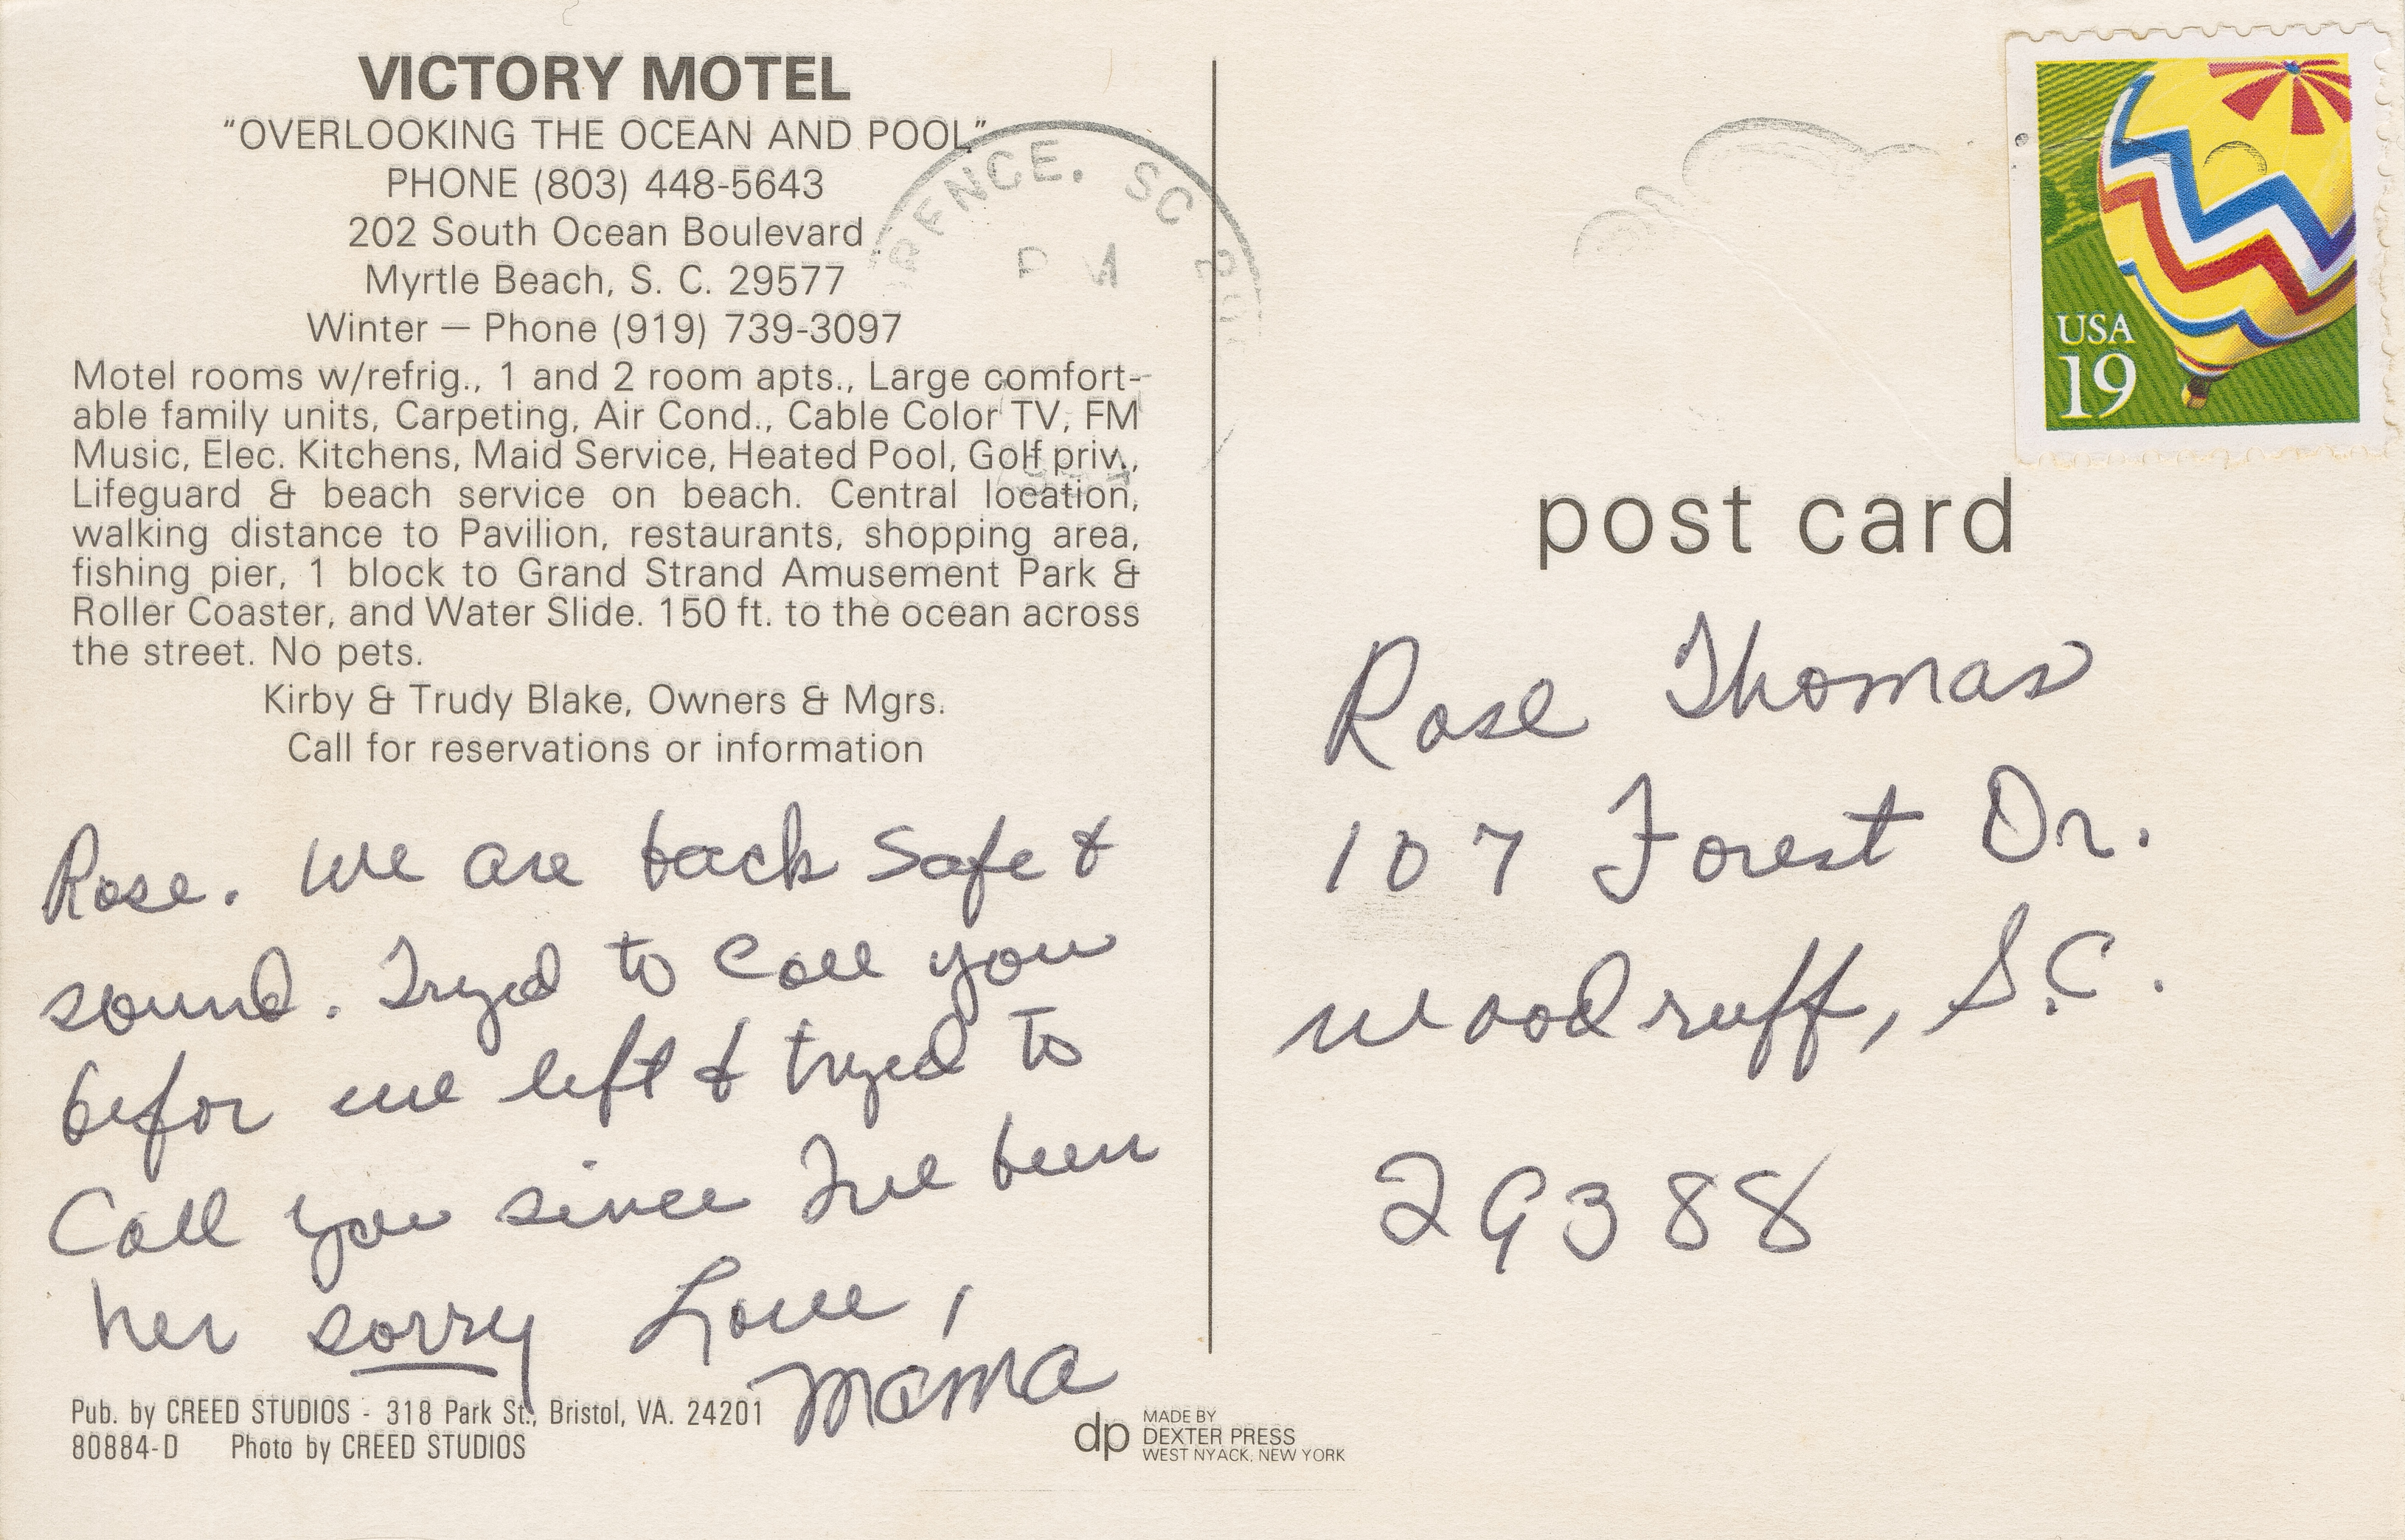 VICTORY MOTEL
“OVERLOOKING THE OCEAN AND POOL”
PHONE (803) 448-5643
202 South Ocean Boulevard
Myrtle Beach, S. C. 29577
Winter — Phone (919) 739-3097
Motel rooms w/refrig., 1 and 2 room apts., Large comfort-
able family units, Carpeting, Air Cond., Cable Color TV, FM
Music, Elec. Kitchens, Maid Service, Heated Pool, Golf priv.,
Lifeguard & beach service on beach. Central location,
walking distance to Pavilion, restaurants, shopping area,
fishing pier, 1 block to Grand Strand Amusement Park &
Roller Coaster, and Water Slide. 150 ft. to the ocean across
the street. No pets.
Kirby & Trudy Blake, Owners & Mgrs.
Call for reservations or information
Rose. We are back safe &
sound. Tryed to call you
befor we left & tryed to
Call you since I've been
her sorry Love,
Mama
Pub. by CREED STUDIOS - 318 Park St., Bristol, VA. 24201
80884-D Photo by CREED STUDIOS
dp MADE BY
DEXTER PRESS
WEST NYACK, NEW YORK
RENCE, SC
PM
USA
19
post card
Rose Thomas
107 Forest Dr.
Woodruff, S.C.
29388